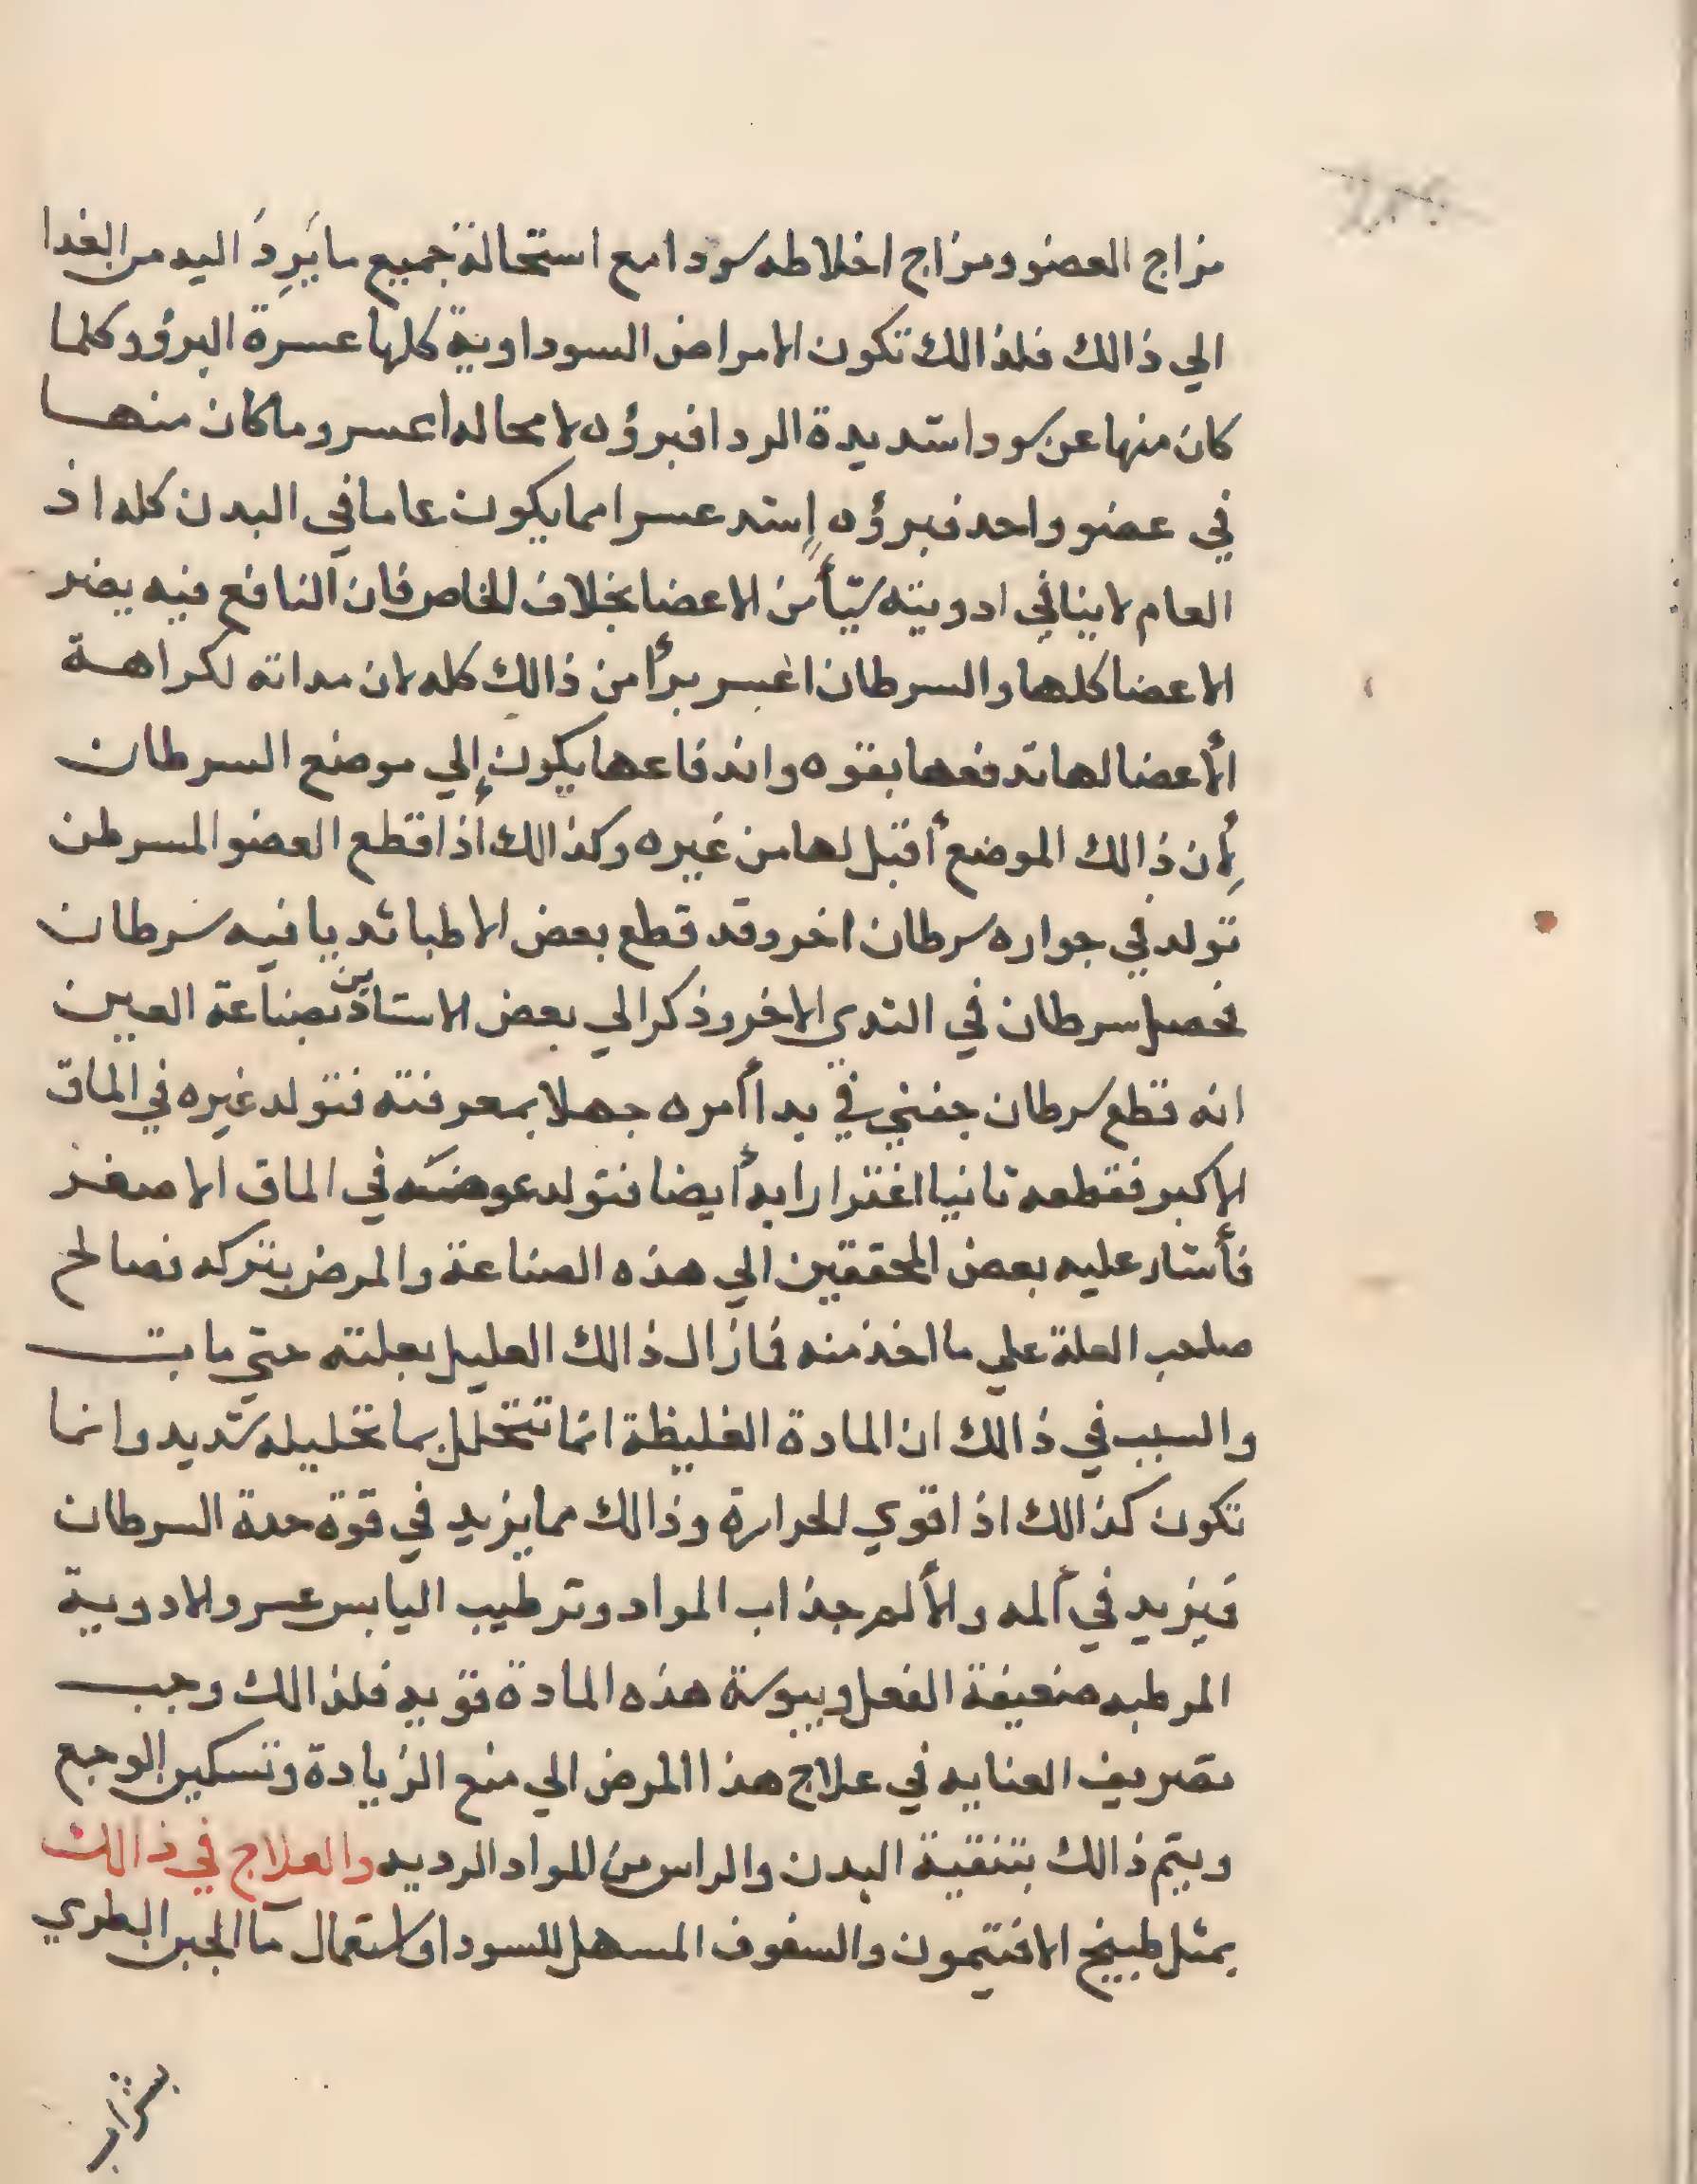 مزاج العضو ومزاج اخلاطه سودا مع استحالة جميع ما يَرِدُ اليه من الغدا
الي ذالك فلذالك تكون الامراض السوداوية كلها عسرة البرؤ وكلما
كان منها عن سودا شديدة الردا فبرؤه لا محاله اعسر وما كان منها
في عضو واحد فبرؤه إشد عسرا مما يكون عاما في البدن كله اذ
العام لا ينافي ادويته شيأً من الاعضا بخلاف الخاص فان النافع فيه يضر
الاعضا كلها والسرطان اعسر برأ من ذالك كله لان مداته لكراهة
الأعضا لها تدفعها بقوه واندفاعها يكون إلي موضع السرطان
لِأن ذالك الموضع أقبل لها من غيره وكذالك أذا قطع العضو المسرطن
تولد في جواره سرطان اخر وقد قطع بعض الاطبا ثديا فيه سرطان
فحصل سرطان في الثدي الاخر وذكر الي بعض الاستاذين بصناعة العين
انه قطع سرطان جفني في بدأ أمره جهلا بمعرفته فتولد غيره في الماق
الاكبر فقطعه ثانيا اغترارا به أيضا فتولد عوضه في الماق الاصغر
فأشار عليه بعض المحققين الي هذه الصناعة والمرض بتركه فصالح
صاحب العلة علي ما اخذ منه فما زال ذالك العليل بعلته حتي مات
والسبب في ذالك ان المادة الغليظة انما تتحلل بما تحليله شديد وانما
تكون كذالك اذا قوي الحرارة وذالك مما يزيد في قوة حدة السرطان
فيزيد في ألمه والألم جذاب المواد وترطيب اليابس عسر والادوية
المرطبه ضعيفة الفعل ويبوسة هذه المادة قويه فلذالك وجب
تصريف العنايه في علاج هذا المرض الي منع الزيادة وتسكين الوجع
ويتم ذالك بتنقية البدن والراس من المواد الرديه والعلاج في ذالك
بمثل طبيخ الافتيمون والسفوف المسهل للسودا واستعمال مآ الجبن الطري